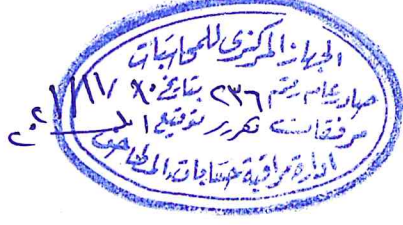 الجهاز المركزى للمحاسبات
صادر عام رقم ٢٣٦ بتاريخ ٩٠/١١/٢٠٢١
مرفقات تقرير توقيع ا
ادارة مراقبة حسابات المطاحن